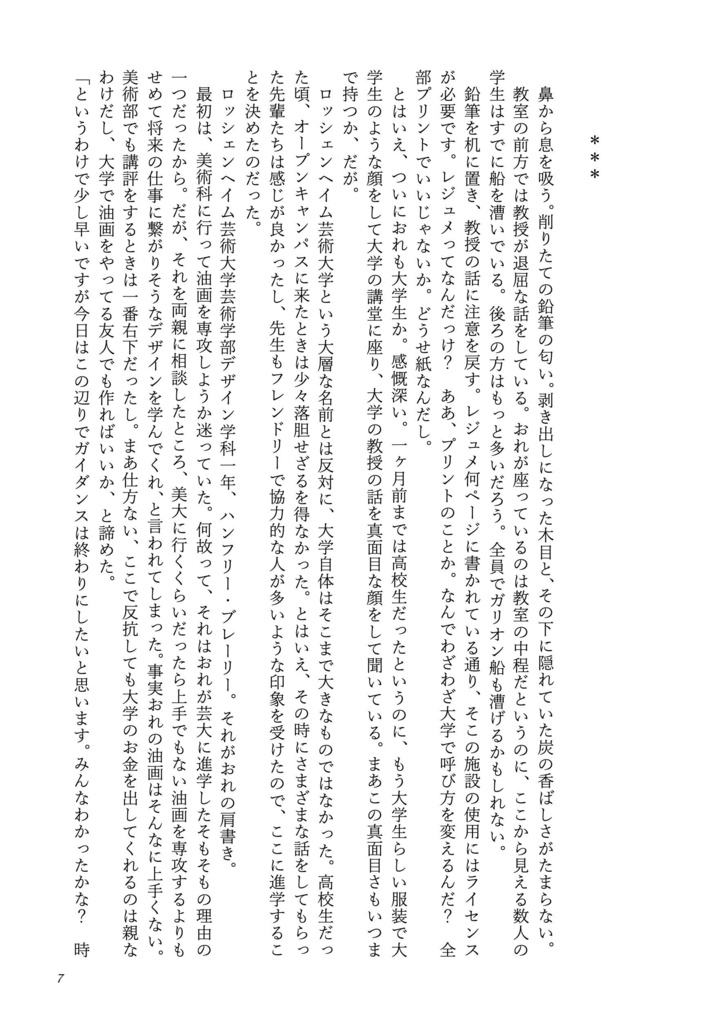 ＊＊＊
　鼻から息を吸う。削りたての鉛筆の匂い。剥き出しになった木目と、その下に隠れていた炭の香ばしさがたまらない。
　教室の前方では教授が退屈な話をしている。おれが座っているのは教室の中程だというのに、ここから見える数人の
学生はすでに船を漕いでいる。後ろの方はもっと多いだろう。全員でガリオン船も漕げるかもしれない。
　鉛筆を机に置き、教授の話に注意を戻す。レジュメ何ページに書かれている通り、そこの施設の使用にはライセンス
が必要です。レジュメってなんだっけ？　ああ、プリントのことか。なんでわざわざ大学で呼び方を変えるんだ？　全
部プリントでいいじゃないか。どうせ紙なんだし。
　とはいえ、ついにおれも大学生か。感慨深い。一ヶ月前までは高校生だったというのに、もう大学生らしい服装で大
学生のような顔をして大学の講堂に座り、大学の教授の話を真面目な顔をして聞いている。まあこの真面目さもいつま
で持つか、だが。
　ロッシェンヘイム芸術大学という大層な名前とは反対に、大学自体はそこまで大きなものではなかった。高校生だっ
た頃、オープンキャンパスに来たときは少々落胆せざるを得なかった。とはいえ、その時にさまざまな話をしてもらっ
た先輩たちは感じが良かったし、先生もフレンドリーで協力的な人が多いような印象を受けたので、ここに進学するこ
とを決めたのだった。
　ロッシェンヘイム芸術大学芸術学部デザイン学科一年、ハンフリー・ブレーリー。それがおれの肩書き。
　最初は、美術科に行って油画を専攻しようか迷っていた。何故って、それはおれが芸大に進学したそもそもの理由の
一つだったから。だが、それを両親に相談したところ、美大に行くくらいだったら上手でもない油画を専攻するよりも
せめて将来の仕事に繋がりそうなデザインを学んでくれ、と言われてしまった。事実おれの油画はそんなに上手くない。
美術部でも講評をするときは一番右下だったし。まあ仕方ない、ここで反抗しても大学のお金を出してくれるのは親な
わけだし、大学で油画をやってる友人でも作ればいいか、と諦めた。
「というわけで少し早いですが今日はこの辺りでガイダンスは終わりにしたいと思います。みんなわかったかな？　時
7